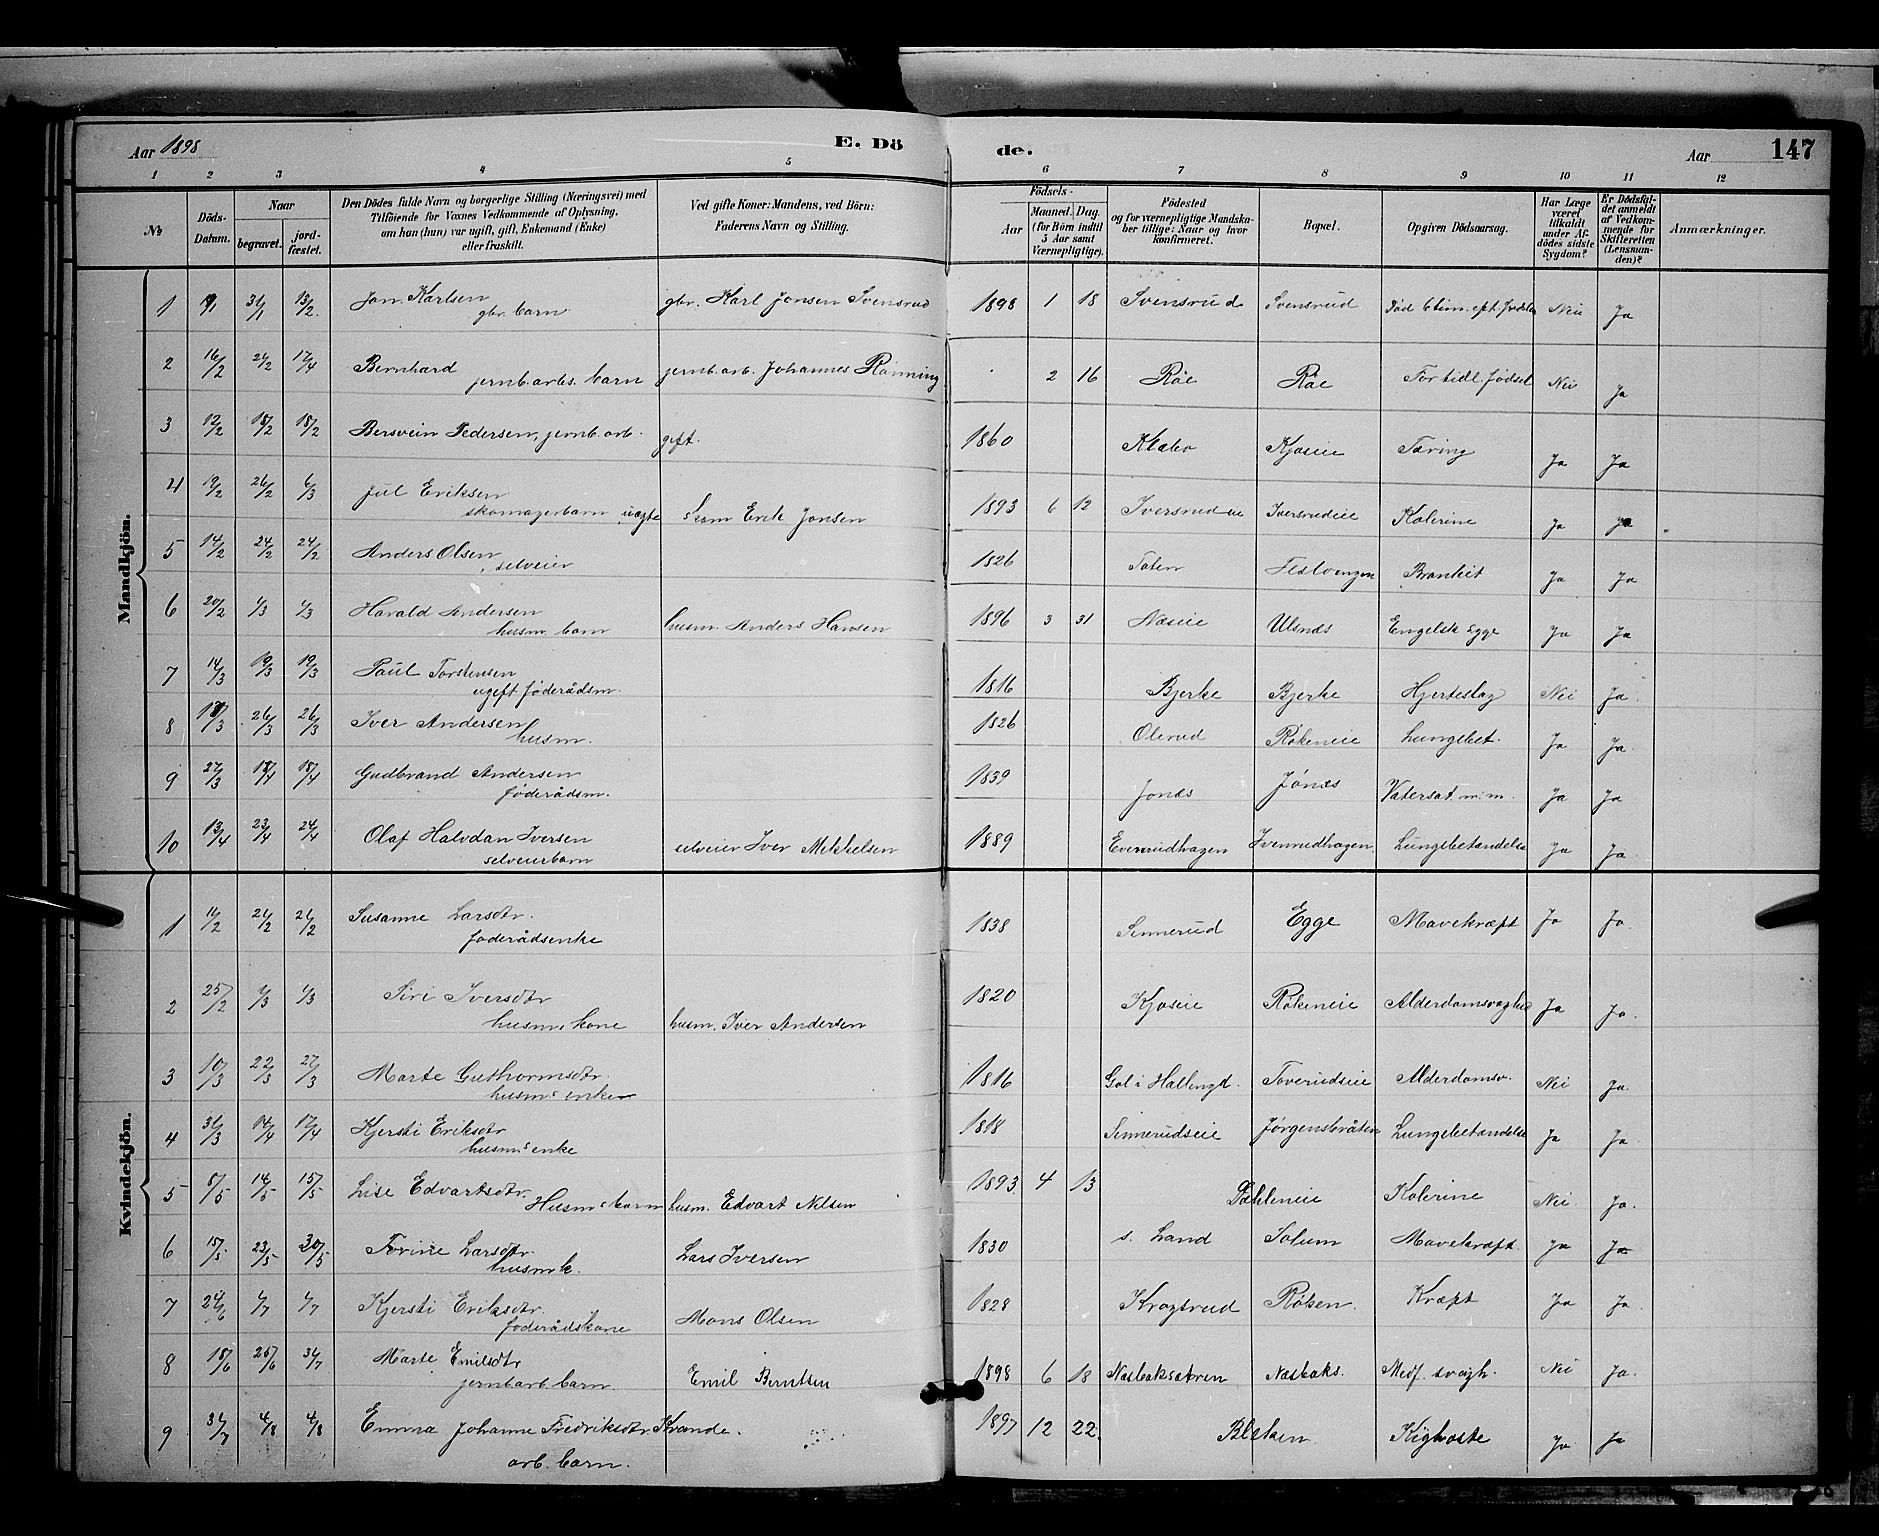 Aar 1898
E. Dö
de.
Aar
147
1 2 3 4 5 6 7 8 9 10 11 12
№
Döds-Datum.
Naar
begravet.
jord-fæstet.
Den Dödes fulde Navn og borgerlige Stilling (Næringsvei) med
Tilföiende for Voxnes Vedkommende af Oplysning,
om han (hun) var ugift, gift, Enkemand (Enke)
eller fraskilt.
Ved gifte Koner: Mandens, ved Börn:
Faderens Navn og Stilling.
Födsels-
Aar
Maaned. Dag.
(for Börn indtil
5 Aar samt
Værnepligtige).
Födested
og for værnepligtige Mandska-
ber tillige: Naar og hvor
konfirmeret.
Bopæl.
Opgiven Dödsaarsag.
Har Læge
været
tilkaldt
under Af-
dödes sidste
Sygdom?
Er Dödsfal-
det anmeldt
af Vedkom-
mende for
Skifteretten
(Lensman-
den)?
Anmærkninger.
Mandkjön.
1 31/1 13/2. Jon Karlsen gbr. Karl Jonsen Svensrud 1898 1 18 Svensrud Svensrud Nei Ja
gbr. barn
2 16/2 24/2 17/4 Bernhard jernb. arb. Johannes Rønning 2 16 Røe Røe For tidl. fødsel Nei Ja
jernb. arbs. barn
3 12/2 18/2 18/2 Bersvein Pedersen, jernb. arb. gift. 1860 Klæbo Kjøseie Tæring Ja Ja
4 19/2 26/2 6/3 Jul Eriksen Skom Erik Jonsen 1893 6 12 Iversrudeie Kolerine Ja Ja
skomagerbarn uægte
5 14/2 24/2 24/2 Anders Olsen 1826 Toten Ja Ja
selveier
6 20/2 4/3 4/3 Harald Andersen husm. Anders Hansen 1896 3 31 Næseie Ulsnæs Engelsk syge Ja Ja
husm. barn
7 14/3 19/3 19/3 Paul Torstensen 1816 Bjerke Bjerke Hjerteslag Nei Ja.
ugift føderådsm.
8 26/3 26/3 Iver Andersen 1826 Olerud Røkeneie Lungebet. Ja Ja.
husm.
9 27/3 18/4 18/4 Gudbrand Andersen 1839 Jønes Jønes Vatersot m.m. Ja Ja
føderådsm.
10 13/4 23/4 24/4 Olaf Halvdan Iversen selveier Iver Mikkelsen 1889 Lungebetændelse Ja Ja.
selveierbarn
Kvindekjön.
1 Susanne Larsdtr. 1838 Sinnerud Egge Mavekræft Ja Ja.
føderådsenke
2 25/2 4/3 4/3 Siri Iversdtr husm. Iver Andersen 1820 Kjøseie Røkeneie Alderdomsvaghed Ja Ja.
husms kone
3 10/3 22/3 27/3 Marte Guthormsdtr. 1816 Gol i Hallingd. Toverudseie Alderdomsv. Nei Ja.
husms enke
4 31/3 14/4 17/4 Kjersti Eriksdtr 1818 Sinnerudseie Jørgensbråten Lungebetændelse Ja Ja.
husms enke
5 5/5 14/5 15/5 Lise Edvartsdtr. husm. Edvart Nilsen 1893. 4 13 Dahleneie Kolerine Nei Ja.
Husms barn
6 15/5 23/5 30/5 Torine Larsdtr Lars Iversen 1830 s. Land Solum Mavekræft. Ja Ja
husmk.
7 24/6 4/7 4/7 Kjersti Eriksdtr. Mons Olsen 1828 Kragtrud Røken. Kræft Ja Ja.
føderådskone
8 18/6 25/6 31/7 Marte Emilsdtr Emil Berntsen 1898 6 18 Næsbaks. Medf. svagh. Nei Ja.
jernb arb. barn.
9 31/7 4/8 4/8 Emma Johanne Fredriksdtr. Krande. 1897 12 22. Bleken Kighoste Ja Ja
arb. barn.